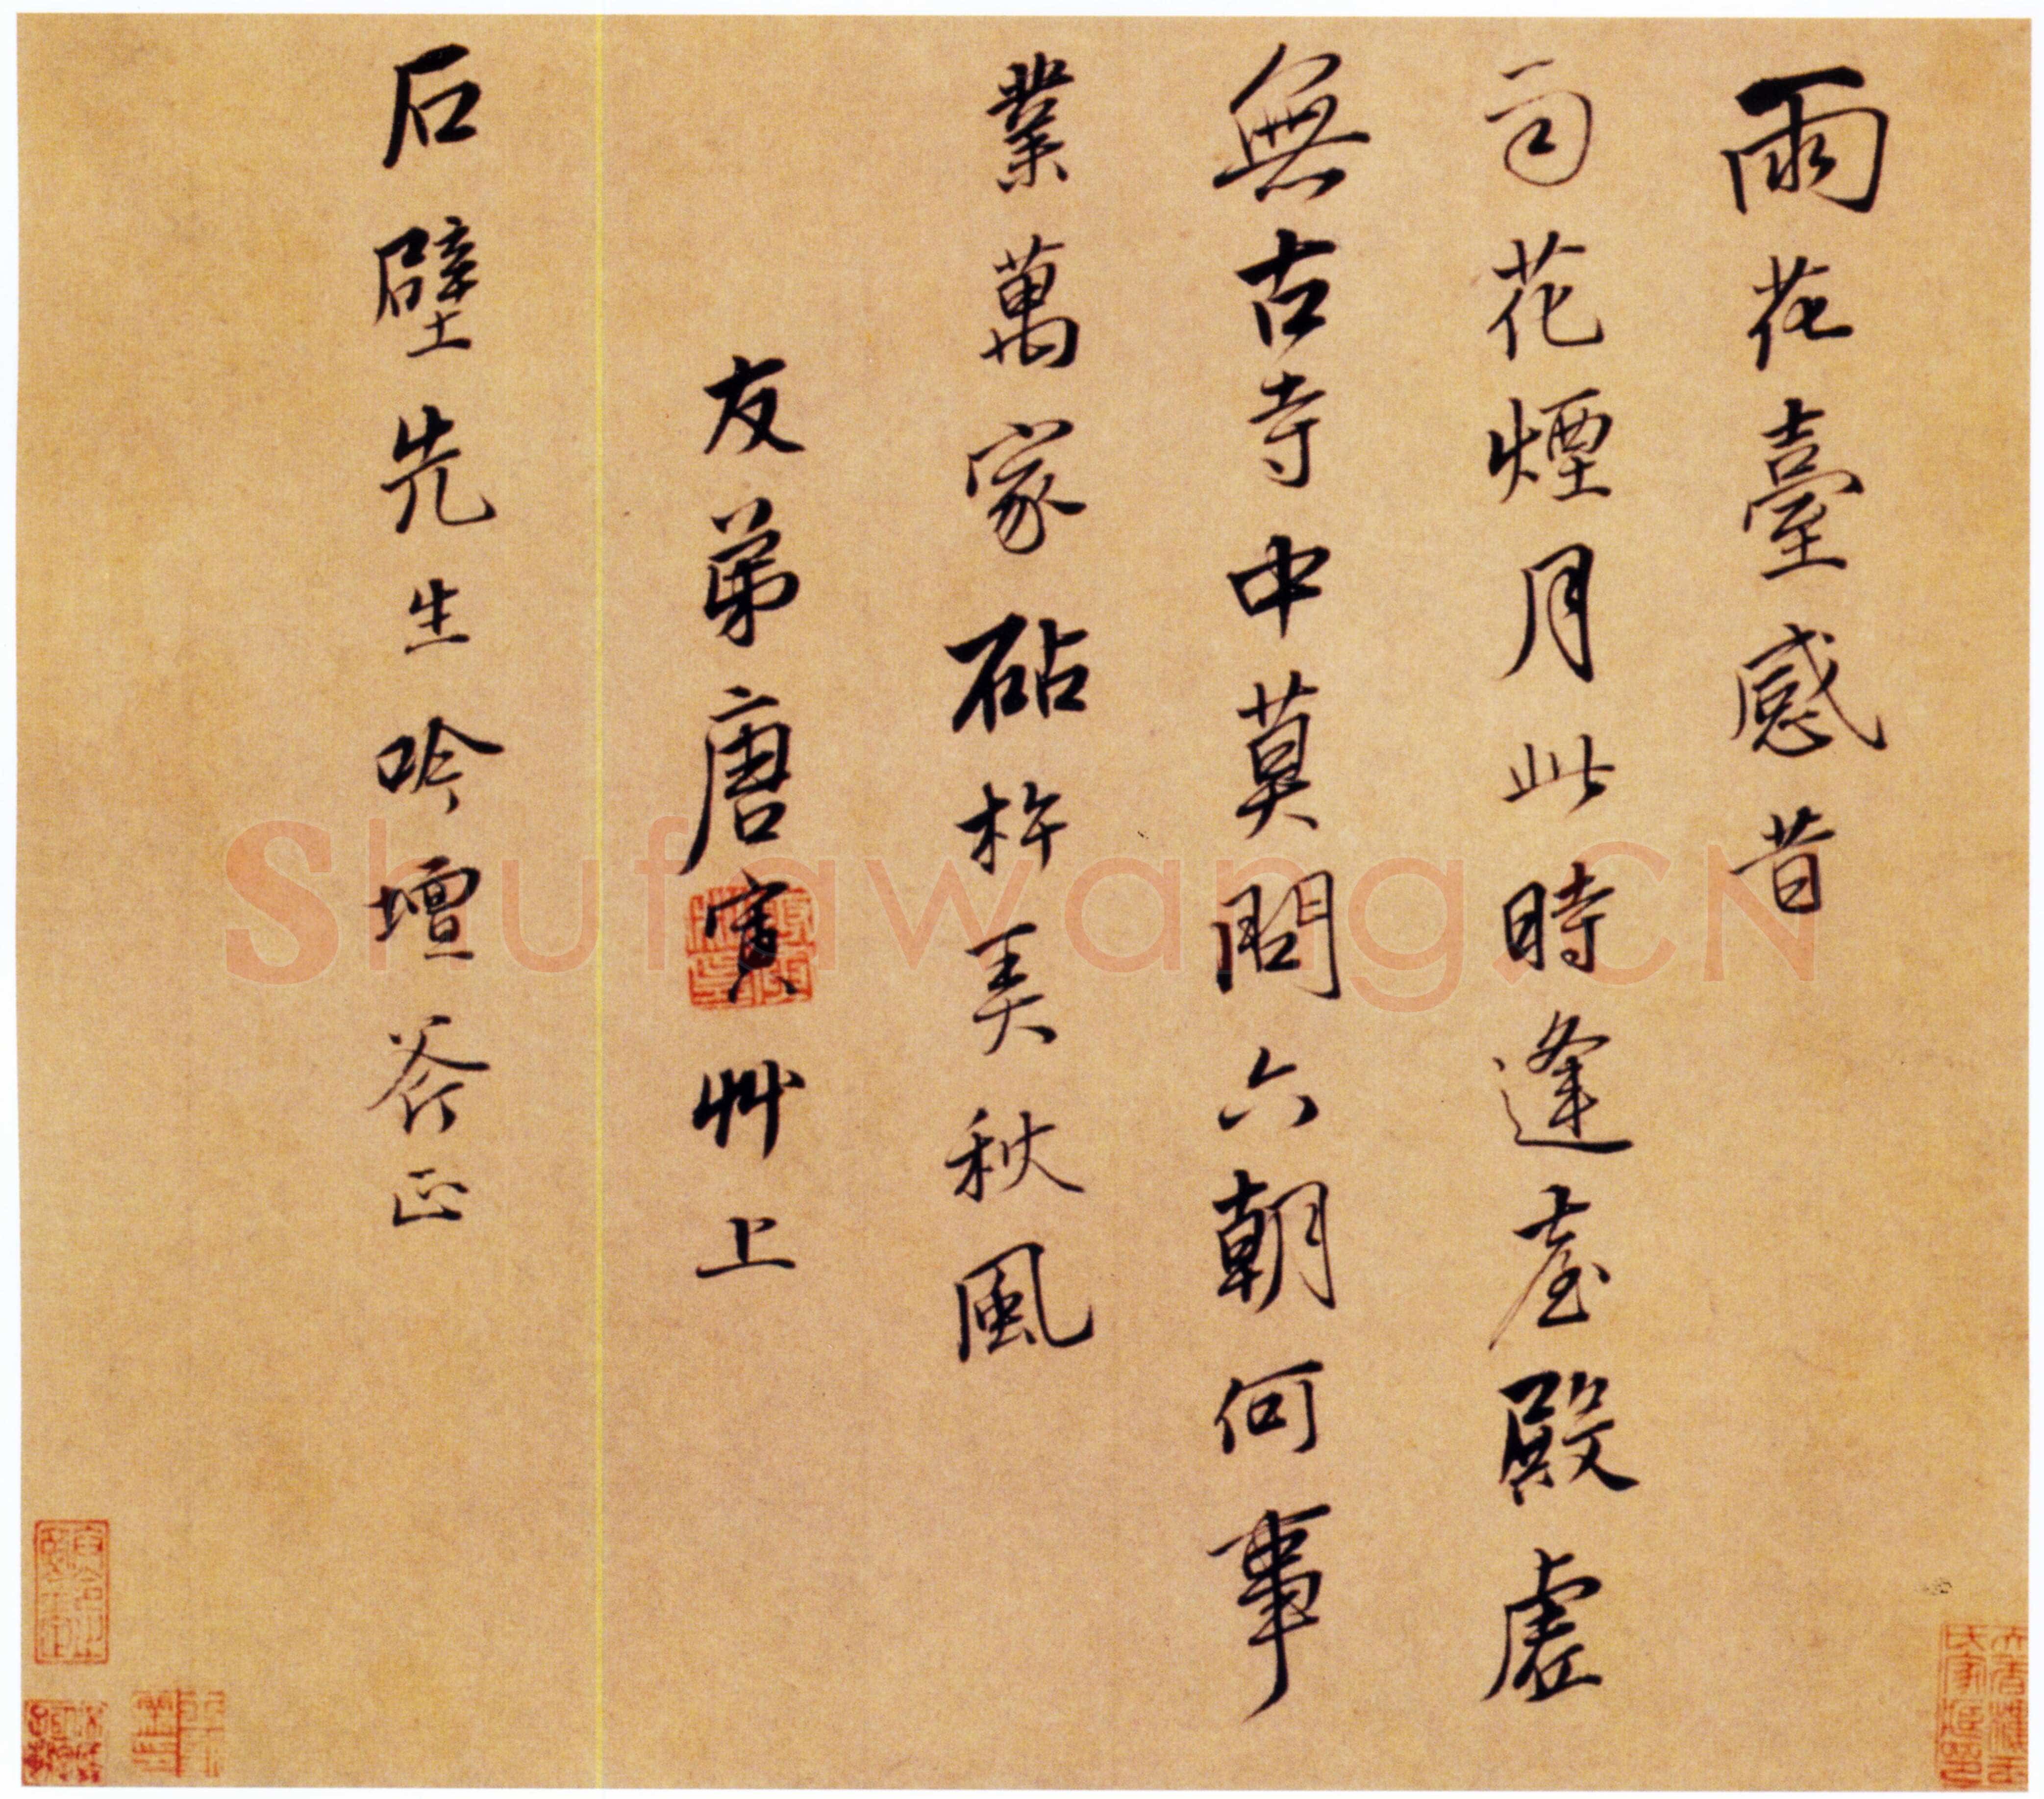 雨花臺感昔
百花煙月此時逢臺殿虛
無古寺中莫問六朝何事
業萬家砧杵美秋風
友弟唐寅艸上
石壁先生吟壇斧正
Shufawang.CN